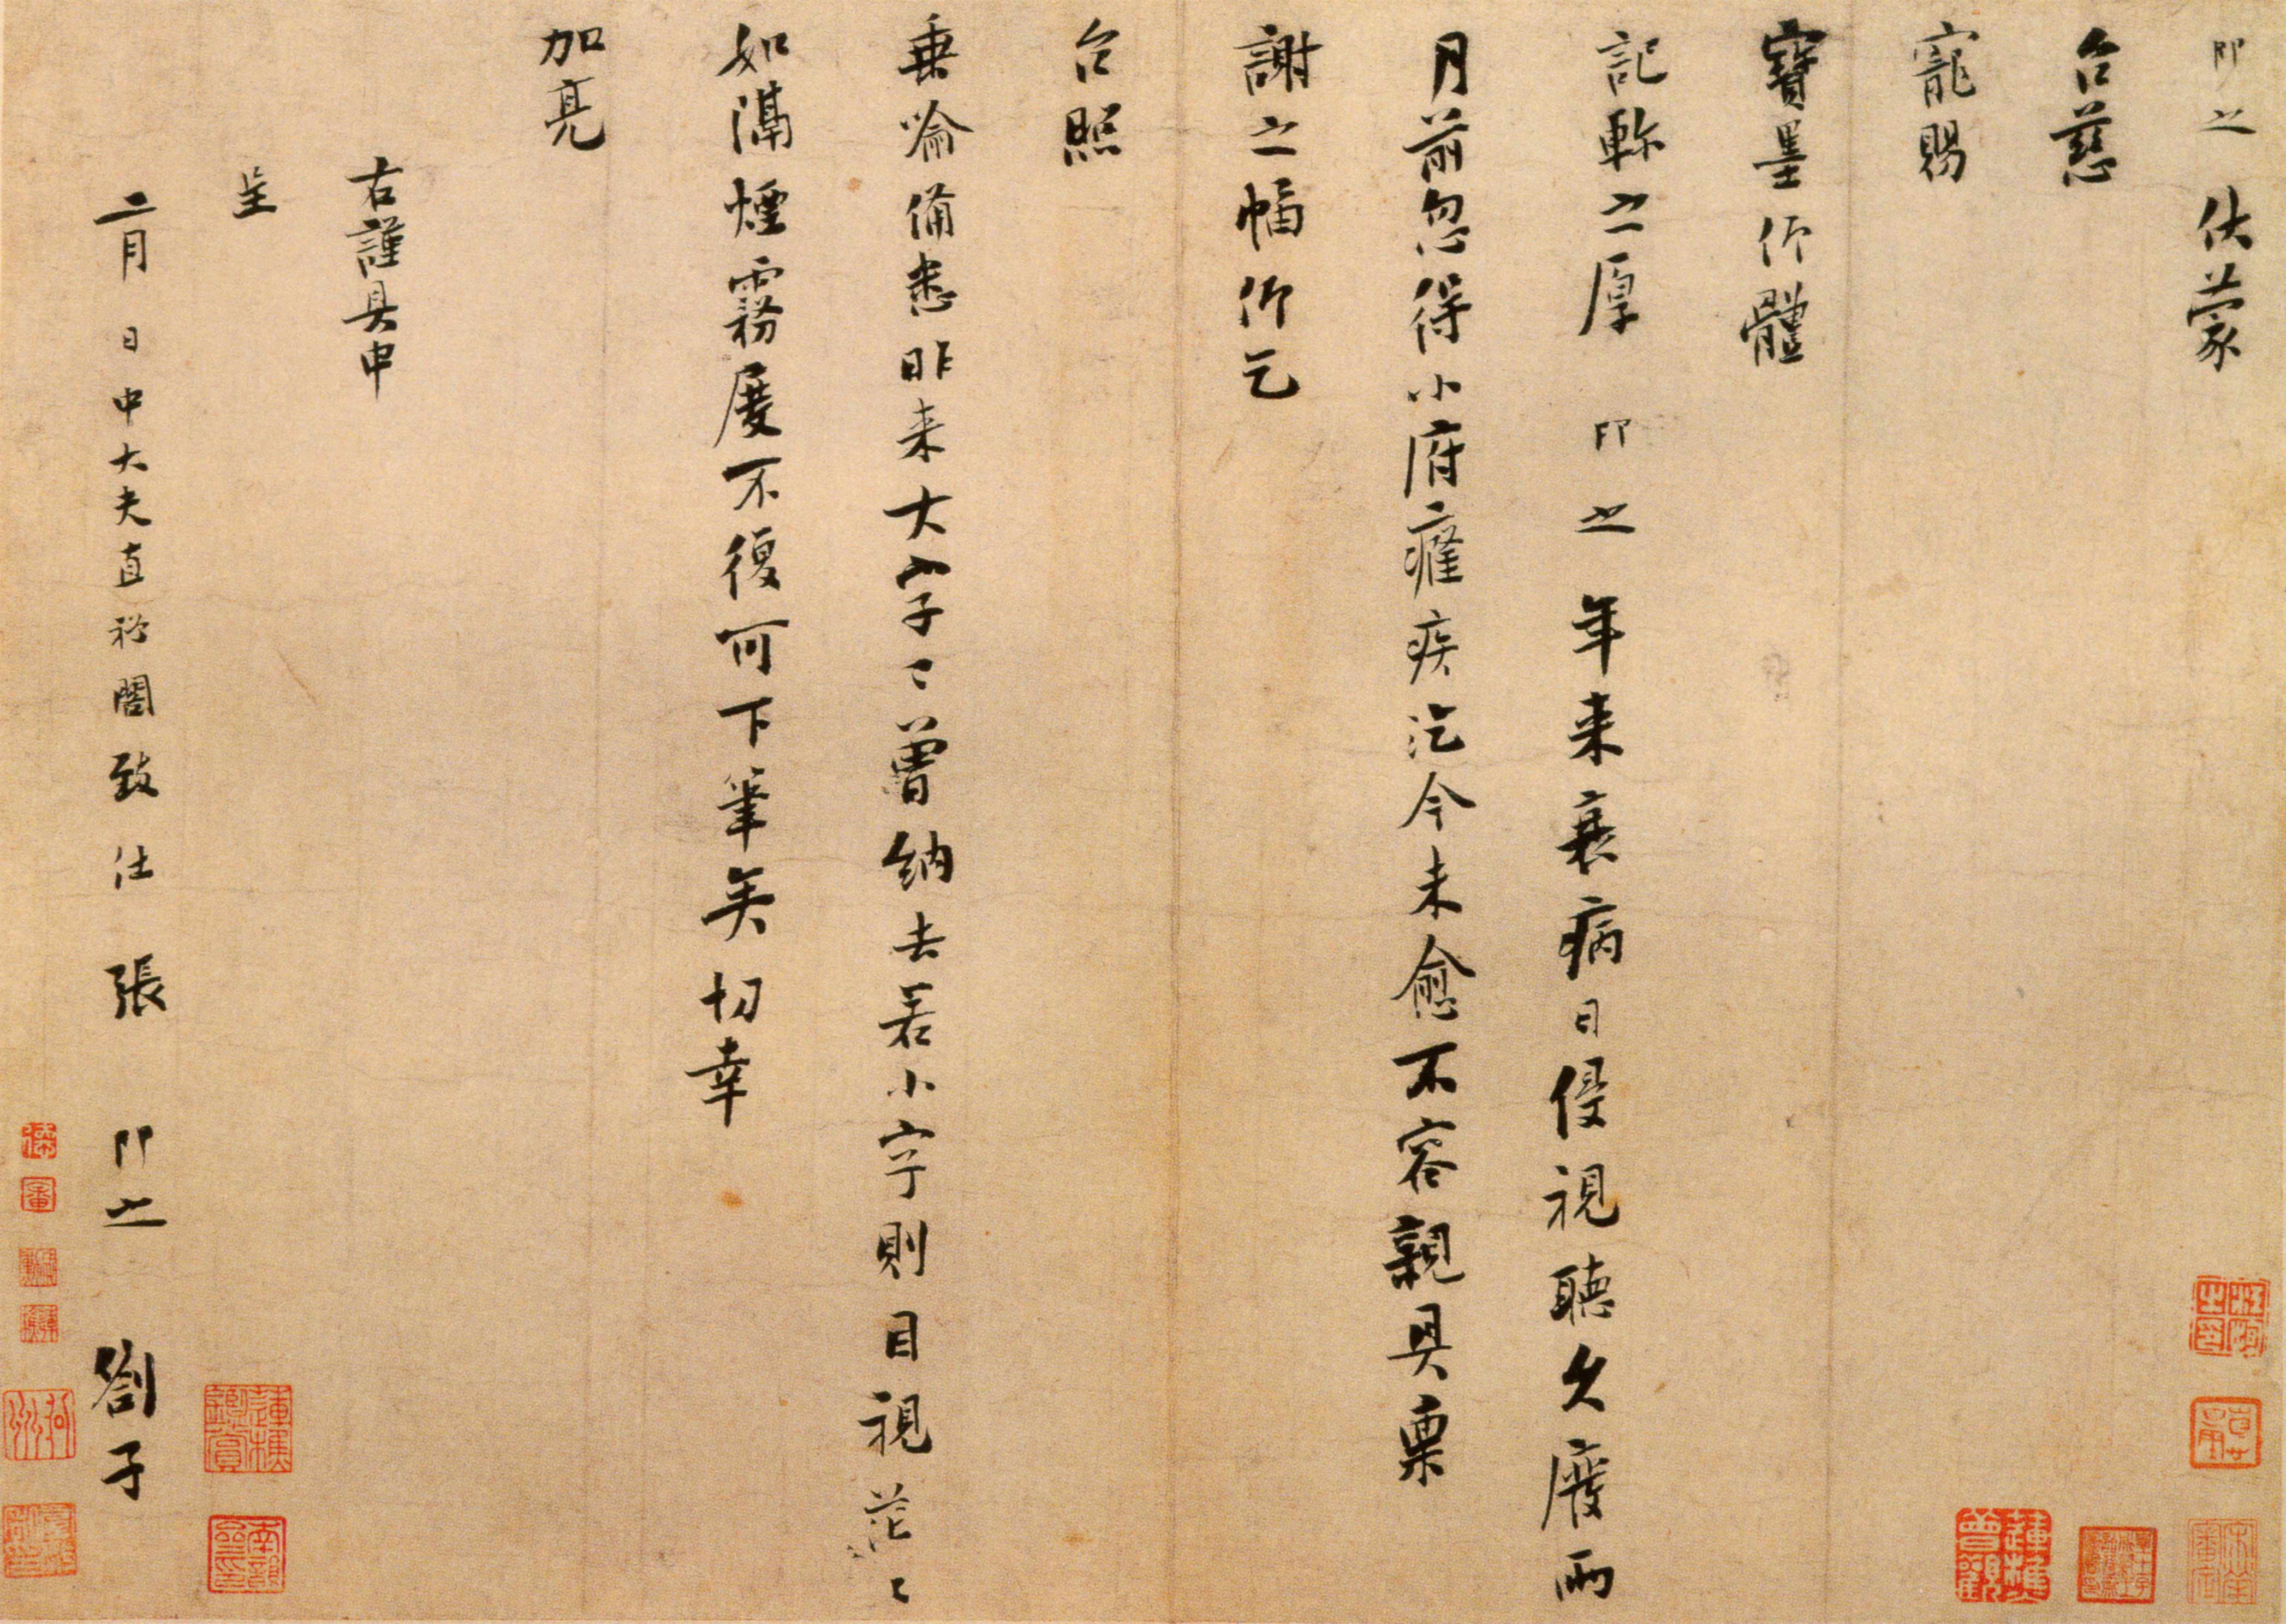 即之伏蒙
台慈
寵賜
寶墨仰體
記軫之厚即之年来衰病日侵視聽久廢兩
月前忽得小府癰疾汔今未愈不容親具稟
謝之幅仰乞
台照
垂喻備悉昨来大字〻曽納去若小字則目視茫〻
如隔煙霧屡不復可下筆矣切幸
加亮
右謹具申
呈
二月日中大夫直秘閣致仕張即之劄子